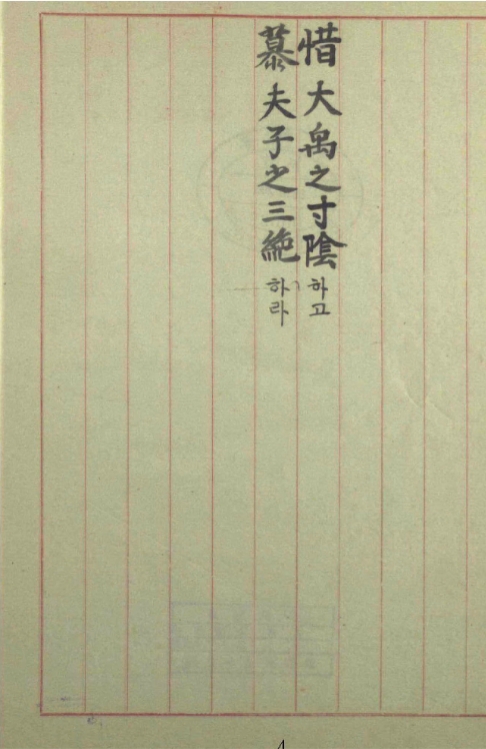 惜大禹之寸陰하고
慕夫子之三絶하라
4